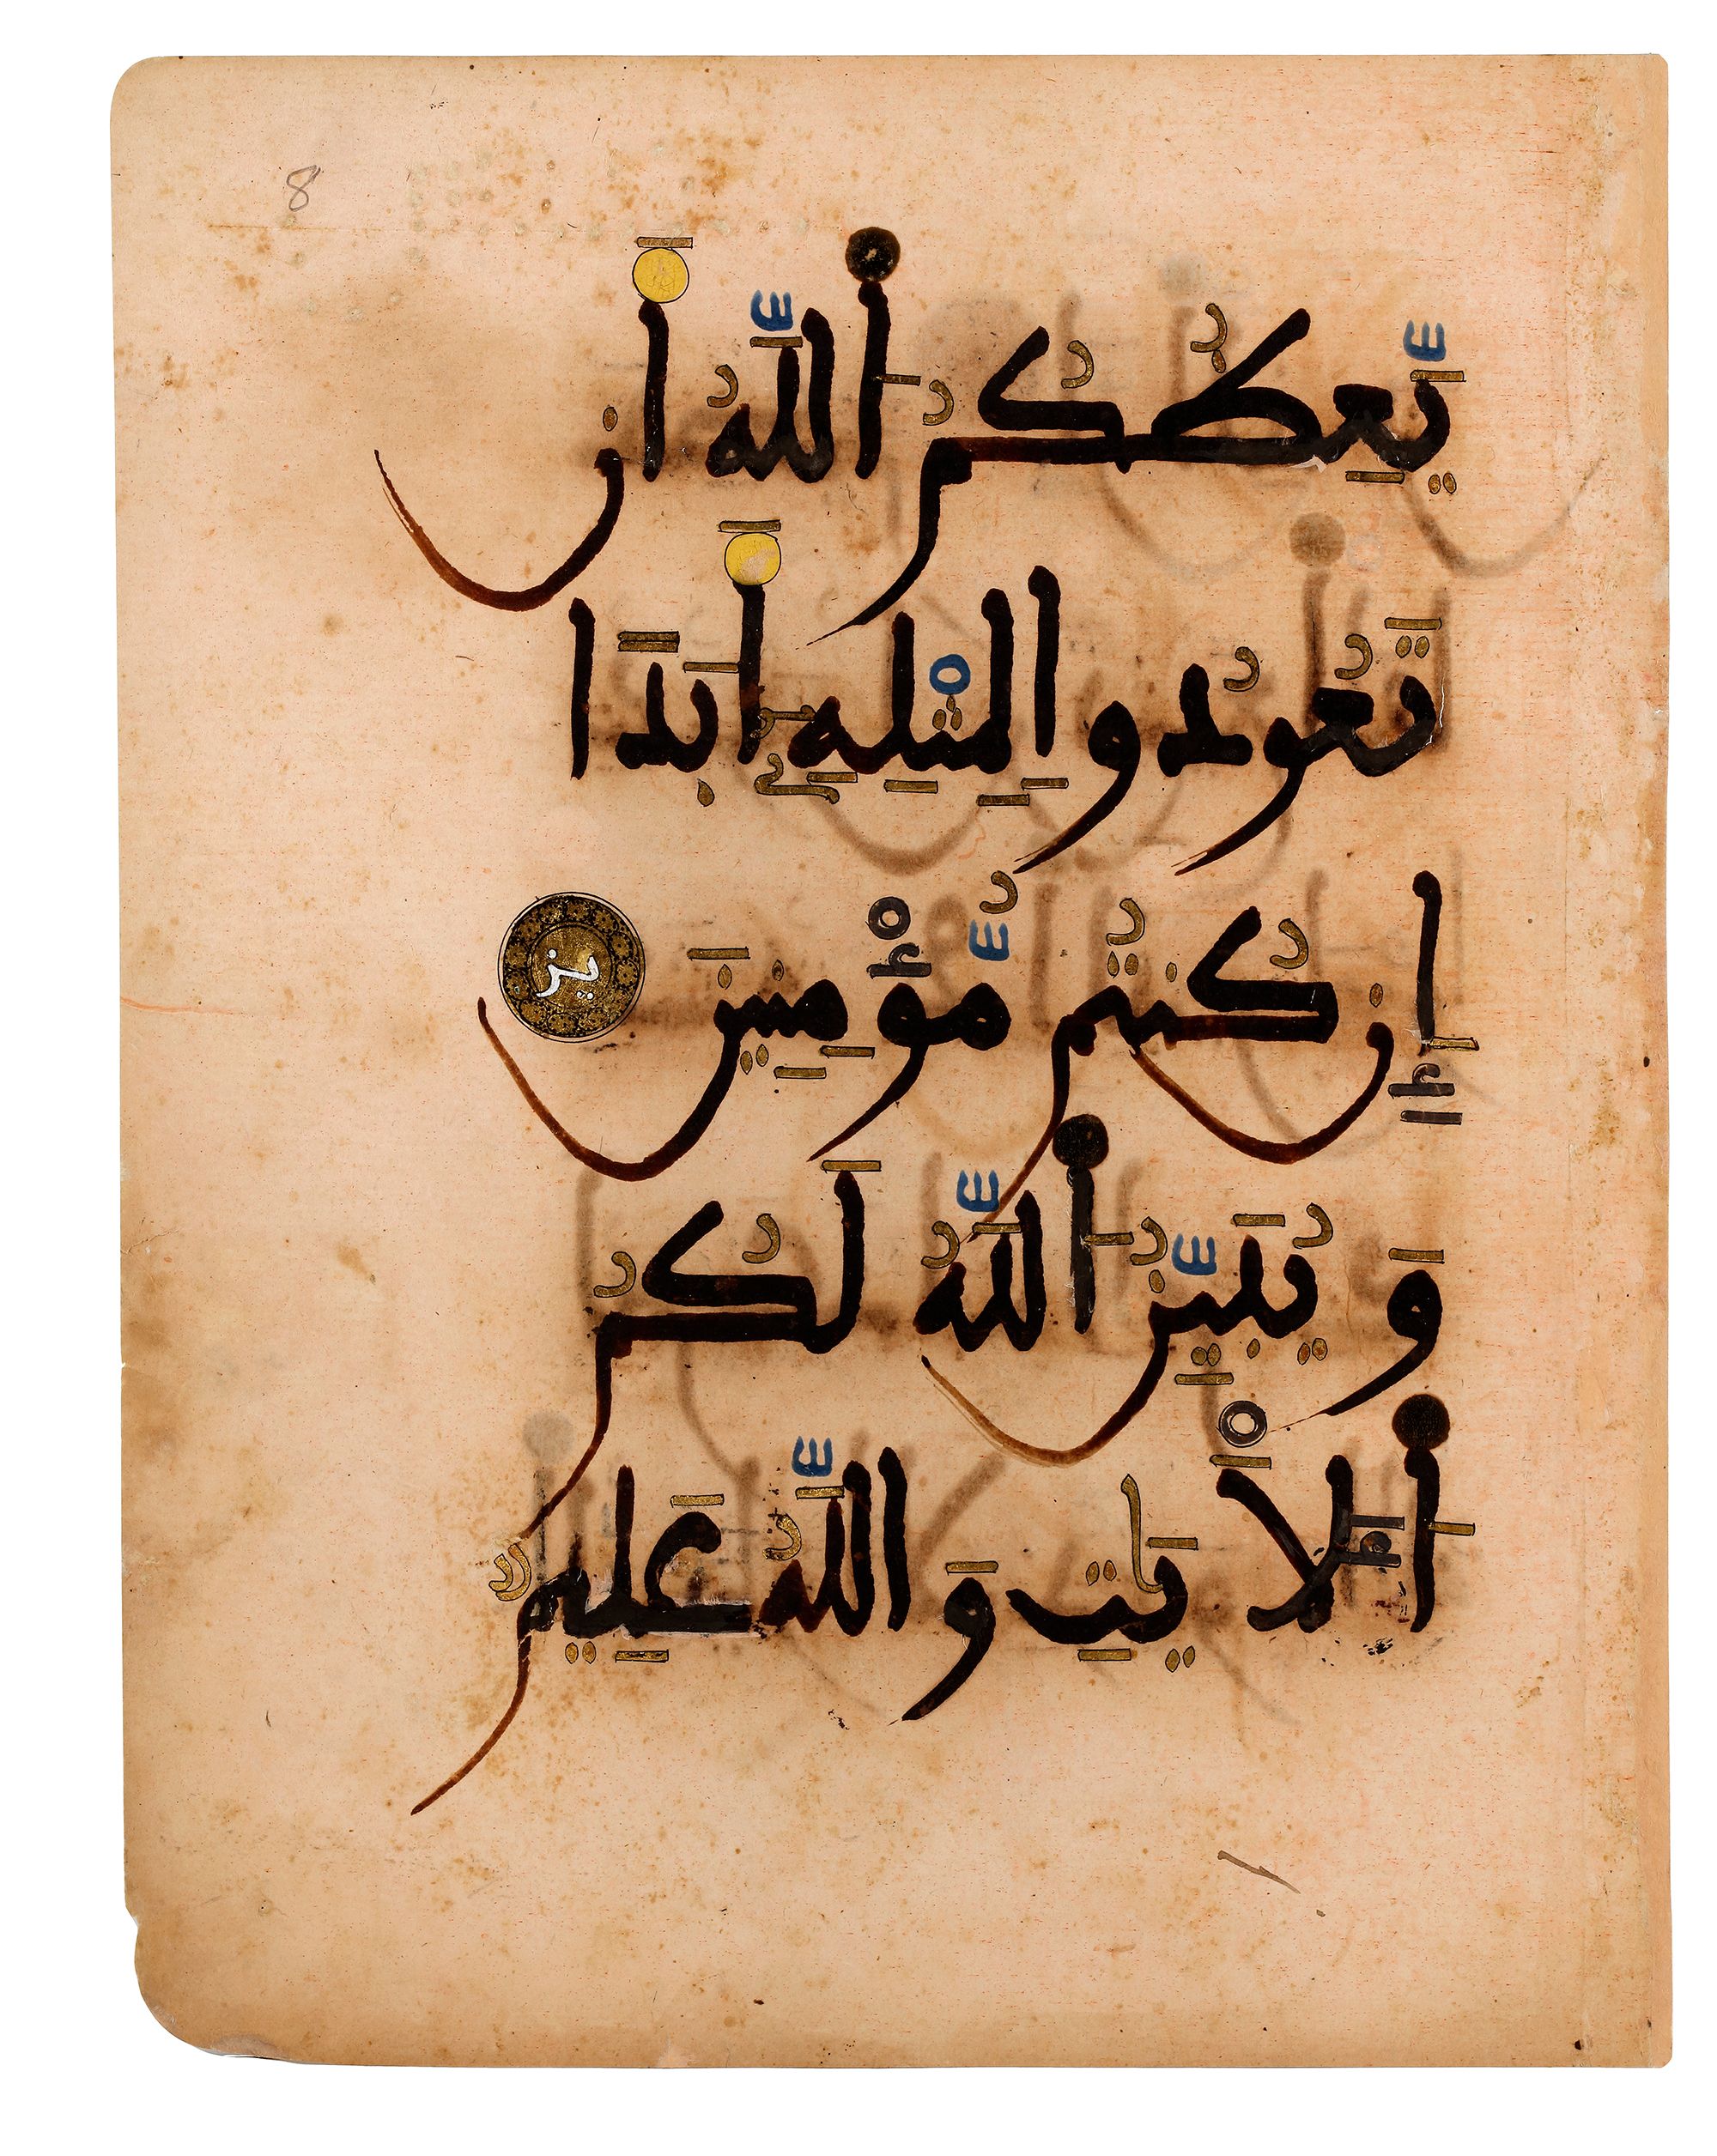 8
يَّعِظُكُمُ اللَّهُ أَن
تَعُودُوا لِمِثْلِهِۦ أَبَدًا
إِن كُنتُم مُّؤْمِنِينَ يز
وَيُبَيِّنُ اللَّهُ لَكُمُ
الْأَيَٰتِ وَاللَّهُ عَلِيمٌ